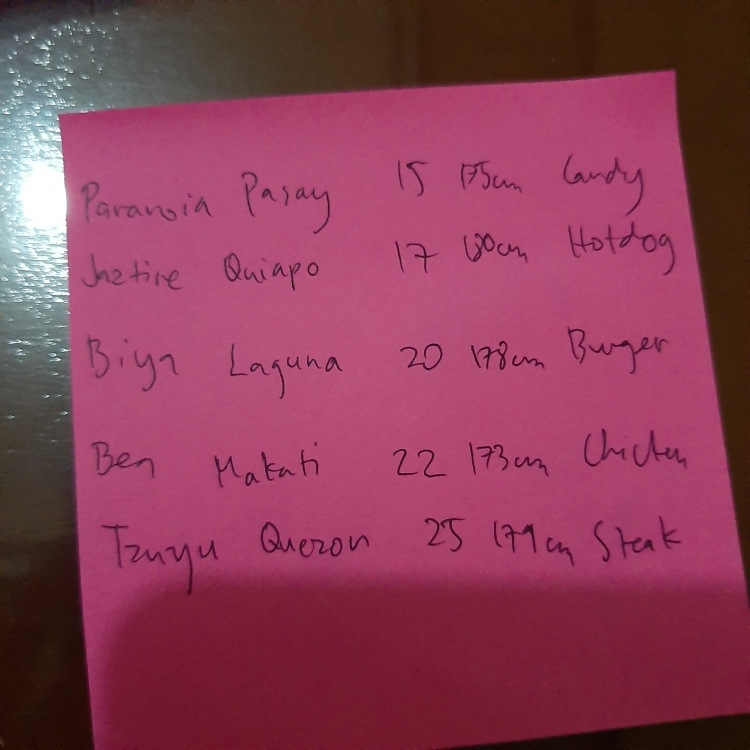 Paranoia Pasay 15 175cm Candy
Jaztine Quiapo 17 180cm Hotdog
Biya Laguna 20 178cm Burger
Ben Makati 22 173cm Chicken
Tzuyu Quezon 25 179cm Steak